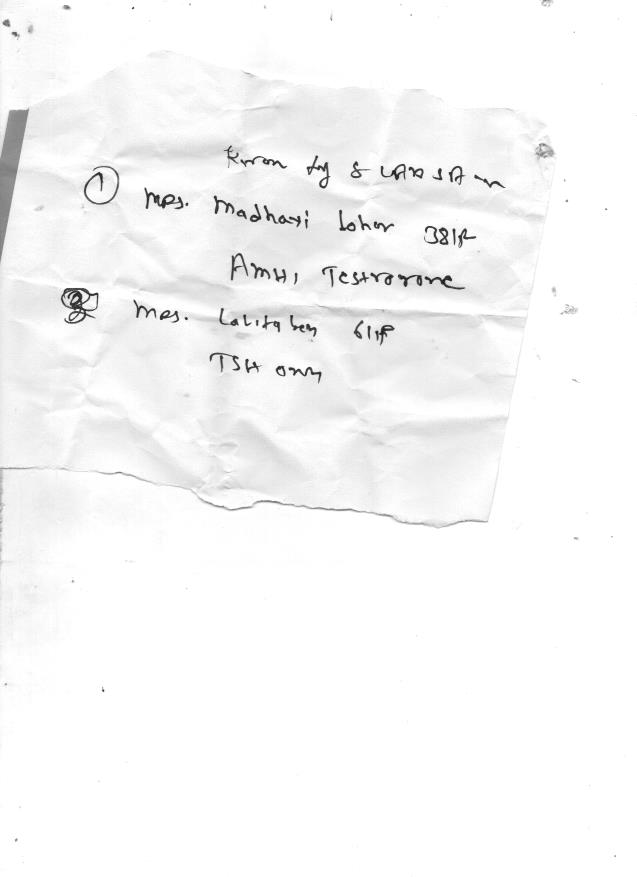 ① Mrs. Madhavi Lohar 38/F
AMH, Testrorone
② Mrs. Lalitaben 61/F
TSH only